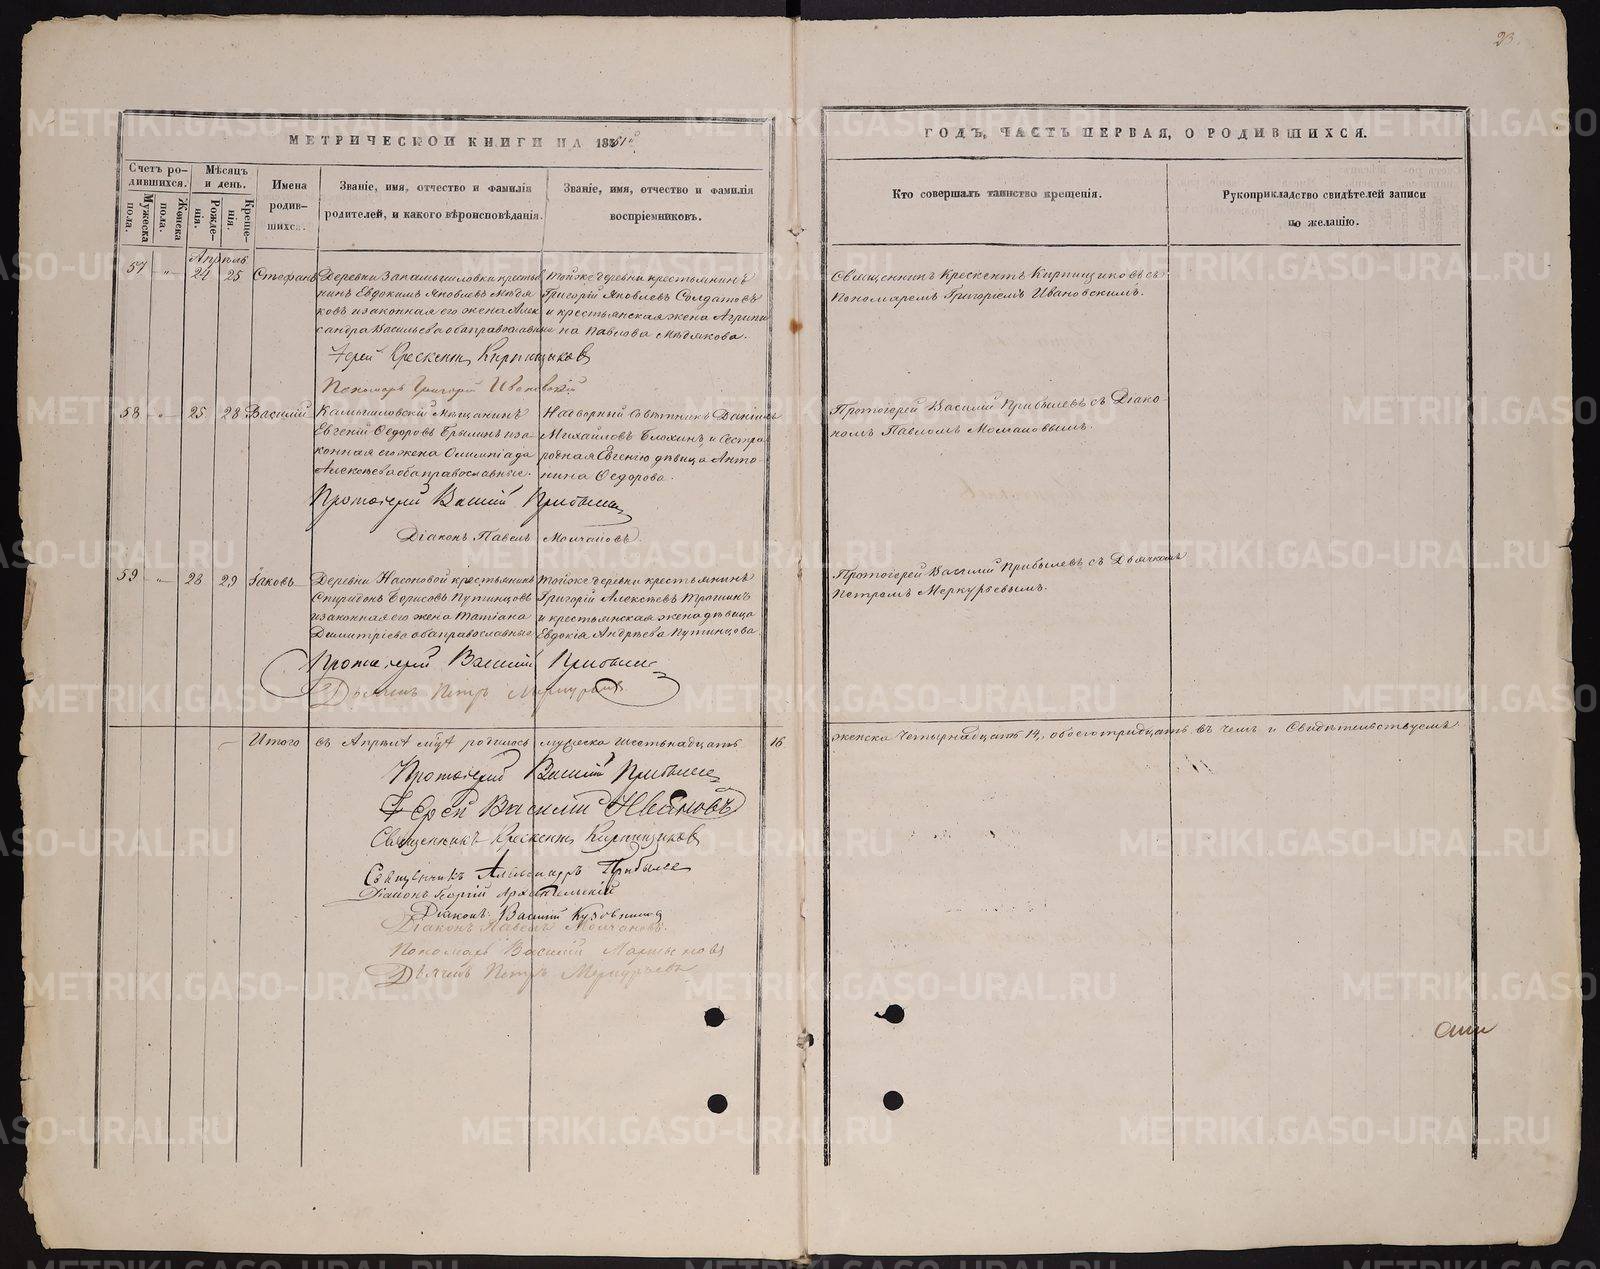 23.
МЕТРИЧЕСКОЙ КНИГИ НА 1851й
ГОДЪ, ЧАСТЬ ПЕРВАЯ, О РОДИВШИХСЯ.
Счетъ родившихся.
Мужеска пола.
Женска пола.
Мѣсяцъ и день.
Рожденія.
Крещенія.
Имена родившихся.
Званіе, имя, отчество и фамилія родителей, и какого вѣроисповѣданія.
Званіе, имя, отчество и фамилія воспріемниковъ.
Кто совершалъ таинство крещенія.
Рукоприкладство свидѣтелей записи по желанію.
Апрѣль
57 „ 24 25 Стефанъ
Деревни Закамышловки крестья
нинъ Евдокимъ Яковлевъ Мѣдя
ковъ и законная его жена Алек
сандра Васильева оба православные
Тойже деревни крестьянинъ
Григорій Яковлевъ Солдатовъ
и крестьянская жена Агрипи
на Павлова Мѣдякова.
Священникъ Крескентъ Кирпищиковъ съ
Пономаремъ Григоріемъ Ивановскимъ.
Іерей Крескентъ Кирпищиковъ
Пономарь Григорій Ивановскій
58 „ 25 28 Василій
Камышловскій Мѣщанинъ
Евгеній Ѳедоровъ Брылинъ и за-
конная его жена Олимпіада
Алексѣева оба православные.
Надворный Совѣтникъ Даніилъ
Михайловъ Блохинъ и Сестра
родная Евгенію дѣвица Анто-
нина Ѳедорова.
Протоіерей Василій Прибылевъ съ Діако-
номъ Павломъ Молчановымъ.
Протоіерей Василій Прибылевъ
Діаконъ Павелъ Молчановъ.
59 „ 28 29 Іаковъ
Деревни Насоновой крестьянинъ
Спиридонъ Борисовъ Путинцовъ
и законная его жена Татіана
Димитріева оба православные
Тойже деревни крестьянинъ
Григорій Алексѣевъ
и крестьянская жена дѣвица
Евдокія Андрѣева Путинцова.
Протоіерей Василій Прибылевъ съ Дьячкомъ
Петромъ Меркурьевымъ.
Протоіерей Василій Прибылевъ
Дьячекъ Петръ Меркурьевъ
Итого въ Апрѣлѣ мцѣ родилось мужеска шестьнадцать 16
женска четырнадцать 14, обоего тридцать въ чемъ и Свидѣтельствуемъ
Протоіерей Василій Прибылевъ
Іерей Василій Ивановъ
Священникъ Крескентъ Кирпищиковъ
Священникъ Александръ Прибылев
Діаконъ Георгій Архангельскій
Діаконъ Василій Кузовниковъ
Діаконъ Павелъ Молчановъ.
Пономарь Василій Мартыновъ
Дьячекъ Петръ Меркурьевъ
METRIKI.GASO-URAL.RU